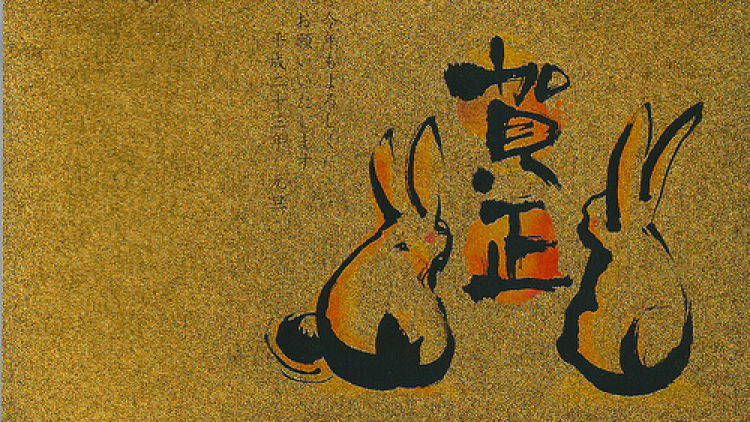 賀正
今年もよろしく
お願いいたします
平成二十三年 元旦